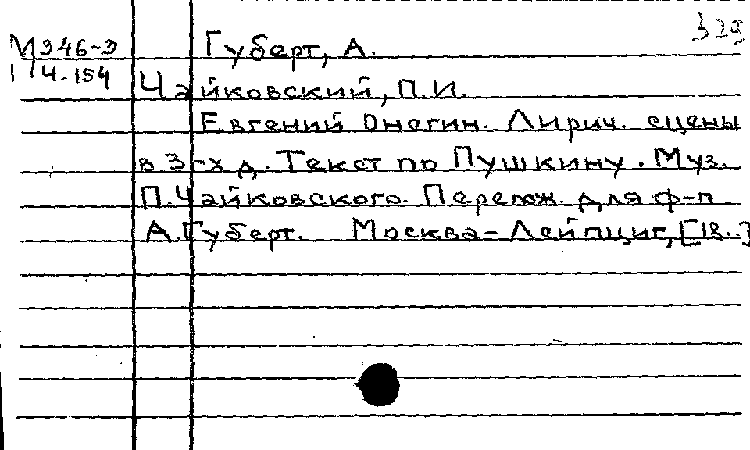 329
М946-3 Губерт, А.
Ч-154
Чайковский, П.И.
Евгений Онегин. Лирич. сцены
в 3-х д. Текст по Пушкину. Муз.
П. Чайковского. Перелож. для ф-п
А. Губерт. Москва-Лейпциг, [18..]